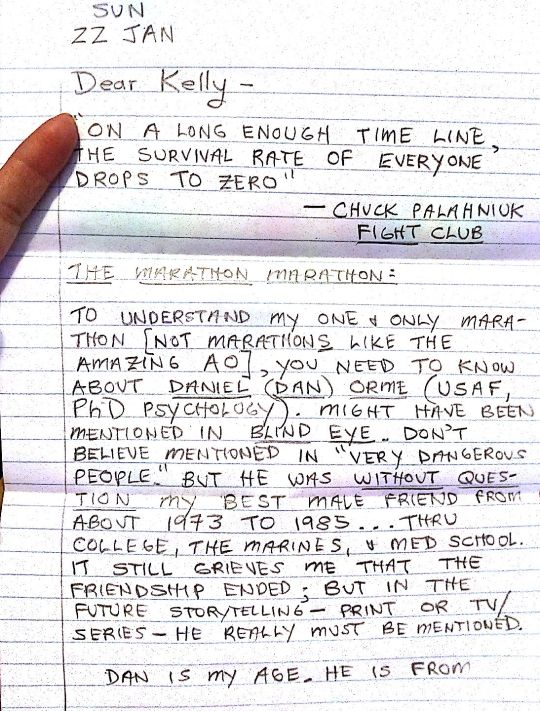 SUN
22 JAN
Dear Kelly -
"ON A LONG ENOUGH TIME LINE,
THE SURVIVAL RATE OF EVERYONE
DROPS TO ZERO"
— CHUCK PALAHNIUK
FIGHT CLUB
THE MARATHON MARATHON:
TO UNDERSTAND MY ONE & ONLY MARA-
THON [NOT MARATHONS LIKE THE
AMAZING AO], YOU NEED TO KNOW
ABOUT DANIEL (DAN) ORME (USAF,
PhD PSYCHOLOGY). MIGHT HAVE BEEN
MENTIONED IN BLIND EYE. DON'T
BELIEVE MENTIONED IN "VERY DANGEROUS
PEOPLE." BUT HE WAS WITHOUT QUES-
TION MY BEST MALE FRIEND FROM
ABOUT 1973 TO 1985... THRU
COLLEGE, THE MARINES, & MED SCHOOL.
IT STILL GRIEVES ME THAT THE
FRIENDSHIP ENDED; BUT IN THE
FUTURE STORYTELLING — PRINT OR TV/
SERIES — HE REALLY MUST BE MENTIONED.
DAN IS MY AGE. HE IS FROM